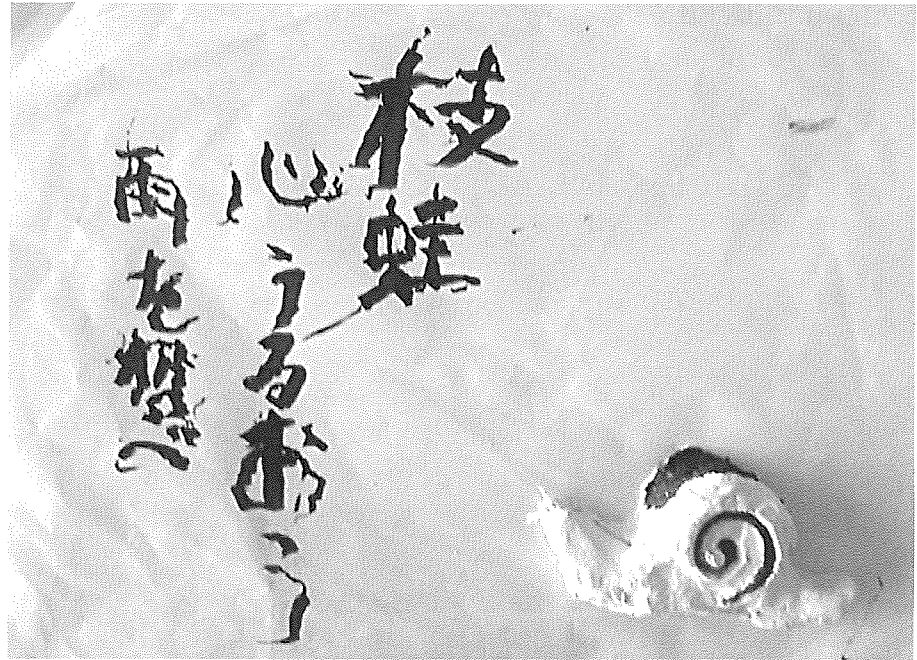 枝蛙
心うるおう
雨を想へ